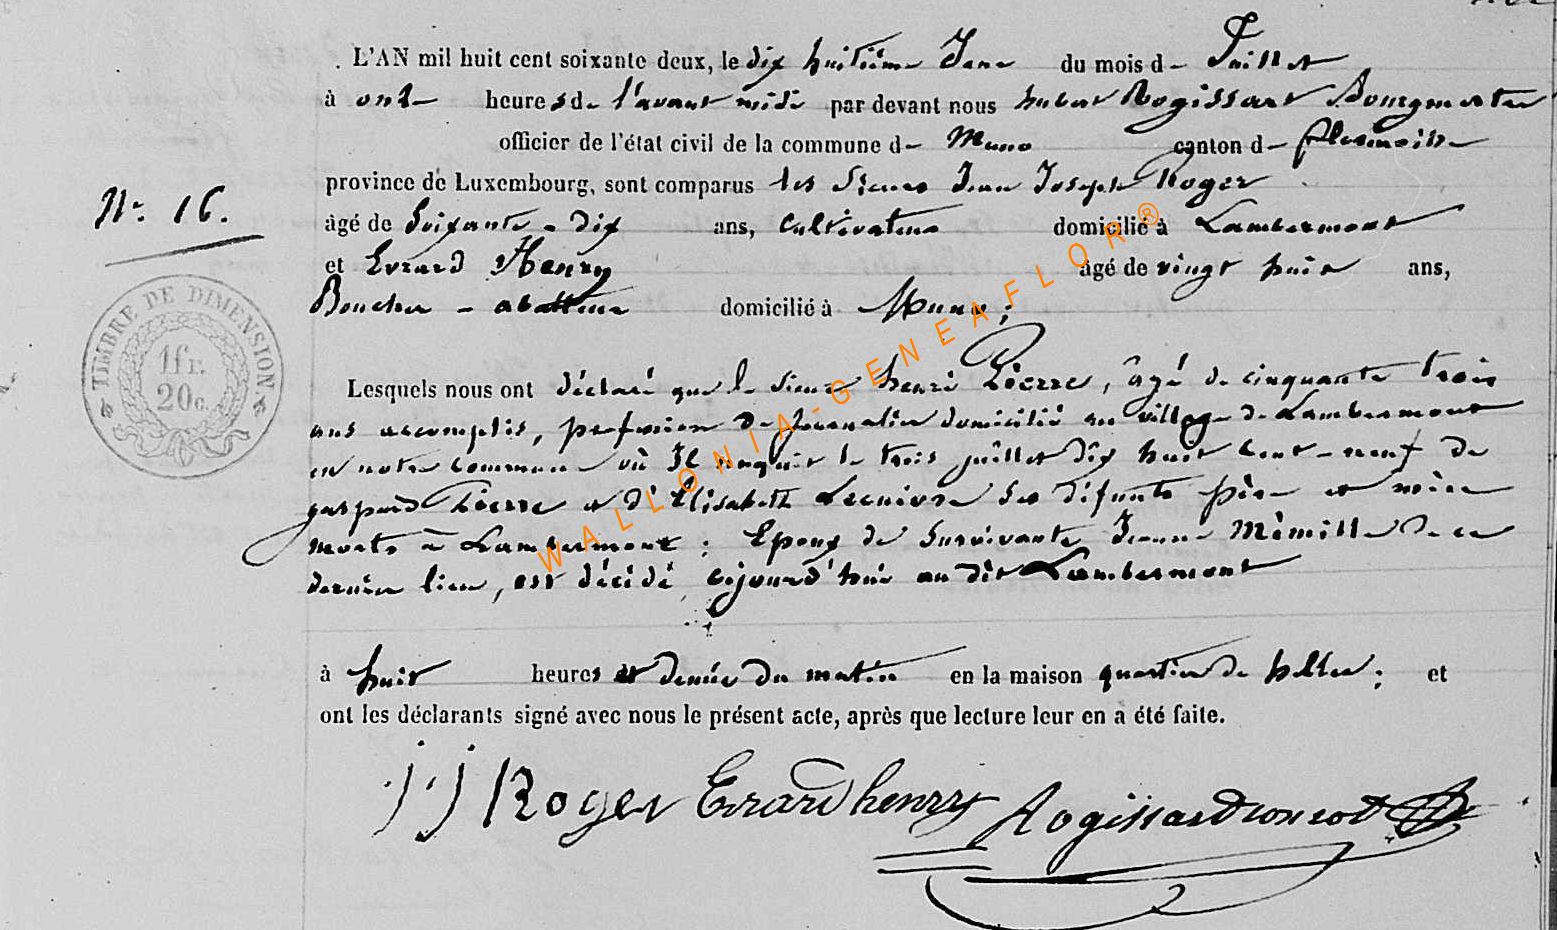 L'AN mil huit cent soixante deux, le dix huitième Jour du mois de Juillet
à onze heures de l'avant midi par devant nous hubert Rogissart Bourgmestre
officier de l'état civil de la commune de Muno canton de florenville
province de Luxembourg, sont comparus les Sieurs Jean Joseph Roger
Nr. 16.
âgé de Soixante-dix ans, Cultivateur domicilié à Lambermont
et Evrard Henry âgé de vingt huit ans,
Boucher - abatteur domicilié à Muno;
TIMBRE DE DIMENSION
1 fr.
20 c.
Lesquels nous ont déclaré que le Sieur henri Pierre, âgé de cinquante trois
ans accomplis, profession de Journalier domicilié au village de Lambermont
en notre commune où Il naquit le trois juillet dix huit cent-neuf de
gaspard Pierre et d'Elisabeth Ses défunts père et mère
morts à Lambermont; Epoux de Survivante Jeanne de ce
dernier lieu, est décédé aujourd'hui au dit Lambermont
à huit heures et demie du matin en la maison quartier de ; et
ont les déclarants signé avec nous le présent acte, après que lecture leur en a été faite.
j j Roger Evrard henry Rogissart
WALLONIA-GENEAFLOR®